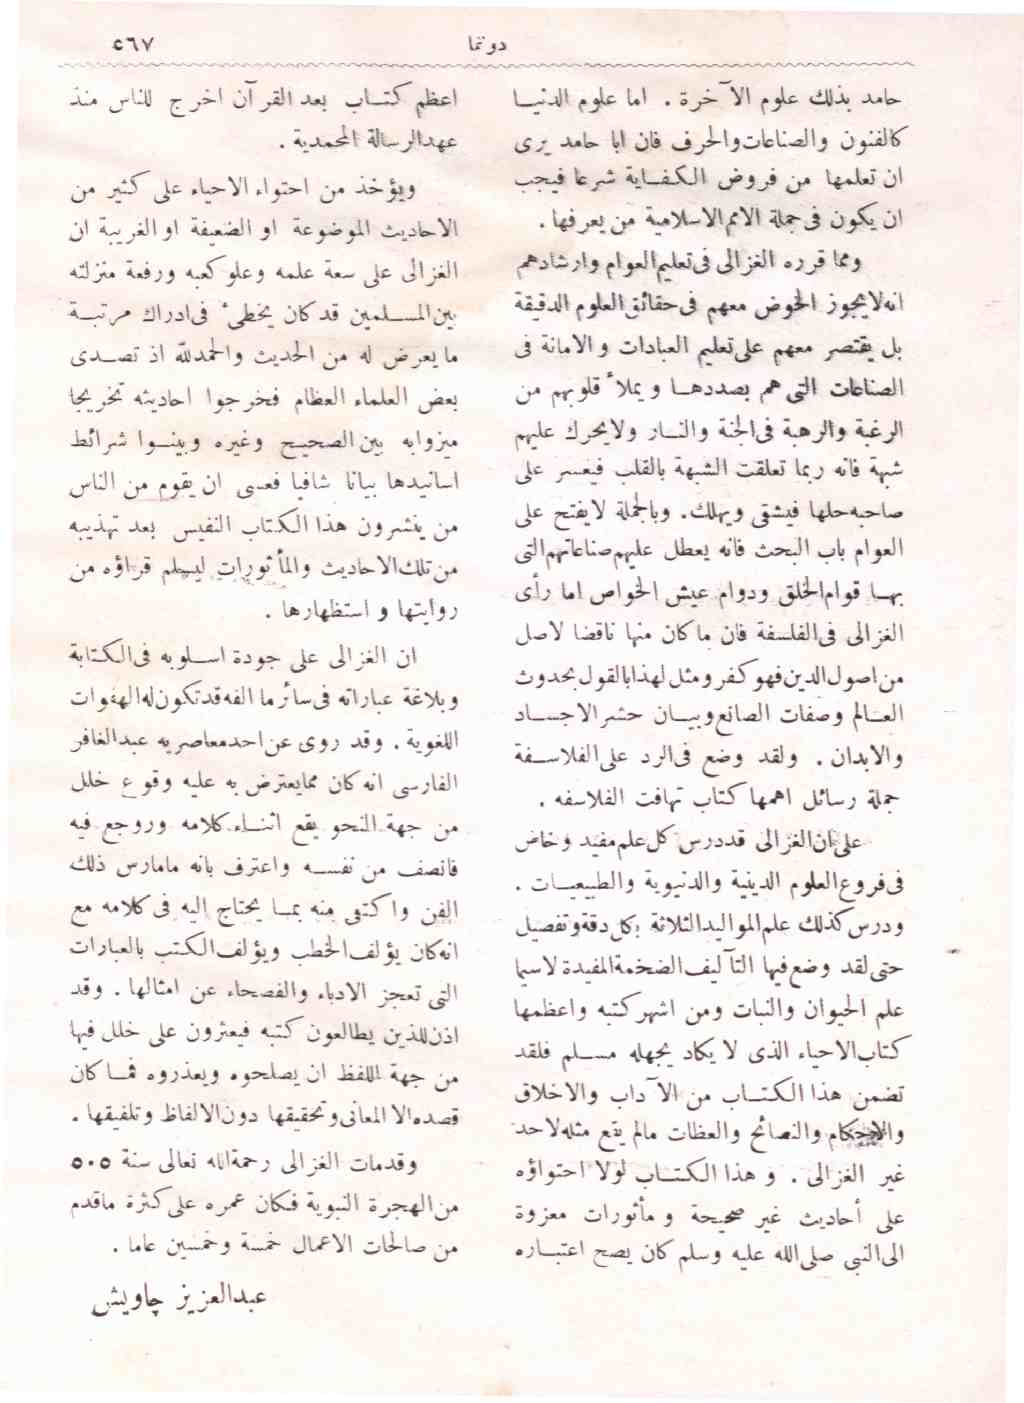 دوننما
٤٦٧
حامد بذلك علوم الآخرة . اما علوم الدنيا
كالفنون والصناعات والحرف فان ابا حامد يرى
ان تعلمها من فروض الكفاية شرعا فيجب
ان يكون فى جملة الامم الاسلامية من يعرفها .
ومما قرره الغزالى فى تعليم العوام وارشادهم
انه لا يجوز الخوض معهم فى حقائق العلوم الدقيقة
بل يقتصر معهم على تعليم العبادات والامانة فى
الصناعات التى هم بصددها ويملأ قلوبهم من
الرغبة والرهبة فى الجنة والنار ولا يحرك عليهم
شبهة فانه ربما تعلقت الشبهة بالقلب فيعسر على
صاحبه حلها فيشقى ويهلك. وبالجملة لا يفتح على
العوام باب البحث فانه يعطل عليهم صناعاتهم التى
بها قوام الخلق ودوام عيش الخواص اما رأى
الغزالى فى الفلسفة فان ما كان منها ناقضا لاصل
من اصول الدين فهو كفر ومثل لهذا بالقول بحدوث
العالم وصفات الصانع وبيان حشر الاجساد
والابدان . ولقد وضع فى الرد على الفلاسفة
جملة رسائل اهمها كتاب تهافت الفلاسفه .
على ان الغزالى قد درس كل علم مفيد وخاض
فى فروع العلوم الدينية والدنيوية والطبيعيات .
ودرس كذلك علم المواليد الثلاثة بكل دقة وتفصيل
حتى لقد وضع فيها التآليف الضخمة المفيدة لاسيما
علم الحيوان والنبات ومن اشهر كتبه واعظمها
كتاب الاحياء الذى لا يكاد يجهله مسلم فلقد
تضمن هذا الكتاب من الآداب والاخلاق
والاحكام والنصائح والعظات مالم يقع مثله لاحد
غير الغزالى . و هذا الكتاب لولا احتواؤه
على أحاديث غير صحيحة و مأثورات معزوة
الى النبى صلى الله عليه وسلم كان يصح اعتباره
اعظم كتاب بعد القرآن اخرج للناس منذ
عهد الرسالة المحمدية .
ويؤخذ من احتواء الاحياء على كثير من
الاحاديث الموضوعة او الضعيفة او الغريبة ان
الغزالى على سعة علمه وعلو كعبه ورفعة منزلته
بين المسلمين قد كان يخطئ فى ادراك مرتبة
ما يعرض له من الحديث والحمد لله اذ تصدى
بعض العلماء العظام فخرجوا احاديثه تخريجا
ميزوابه بين الصحيح وغيره وبينوا شرائط
اسانيدها بيانا شافيا فعسى ان يقوم من الناس
من ينشرون هذا الكتاب النفيس بعد تهذيبه
من تلك الاحاديث والمأثورات ليسلم قراؤه من
روايتها و استظهارها .
ان الغزالى على جودة اسلوبه فى الكتابة
وبلاغة عباراته فى سائر ما الفه قد تكون له الهفوات
اللغوية . وقد روى عن احد معاصريه عبد الغافر
الفارسى انه كان مما يعترض به عليه وقوع خلل
من جهة النحو يقع اثناء كلامه وروجع فيه
فانصف من نفسه واعترف بانه مامارس ذلك
الفن واكتفى منه بما يحتاج اليه فى كلامه مع
انه كان يؤلف الخطب ويؤلف الكتب بالعبارات
التى تعجز الادباء والفصحاء عن امثالها . وقد
اذن للذين يطالعون كتبه فيعثرون على خلل فيها
من جهة اللفظ ان يصلحوه ويعذروه فما كان
قصده الا المعانى وتحقيقها دون الالفاظ وتلفيقها .
وقدمات الغزالى رحمة الله تعالى سنة ٥٠٥
من الهجرة النبوية فكان عمره على كثرة ماقدم
من صالحات الاعمال خمسة وخمسين عاما .
عبد العزيز چاويش